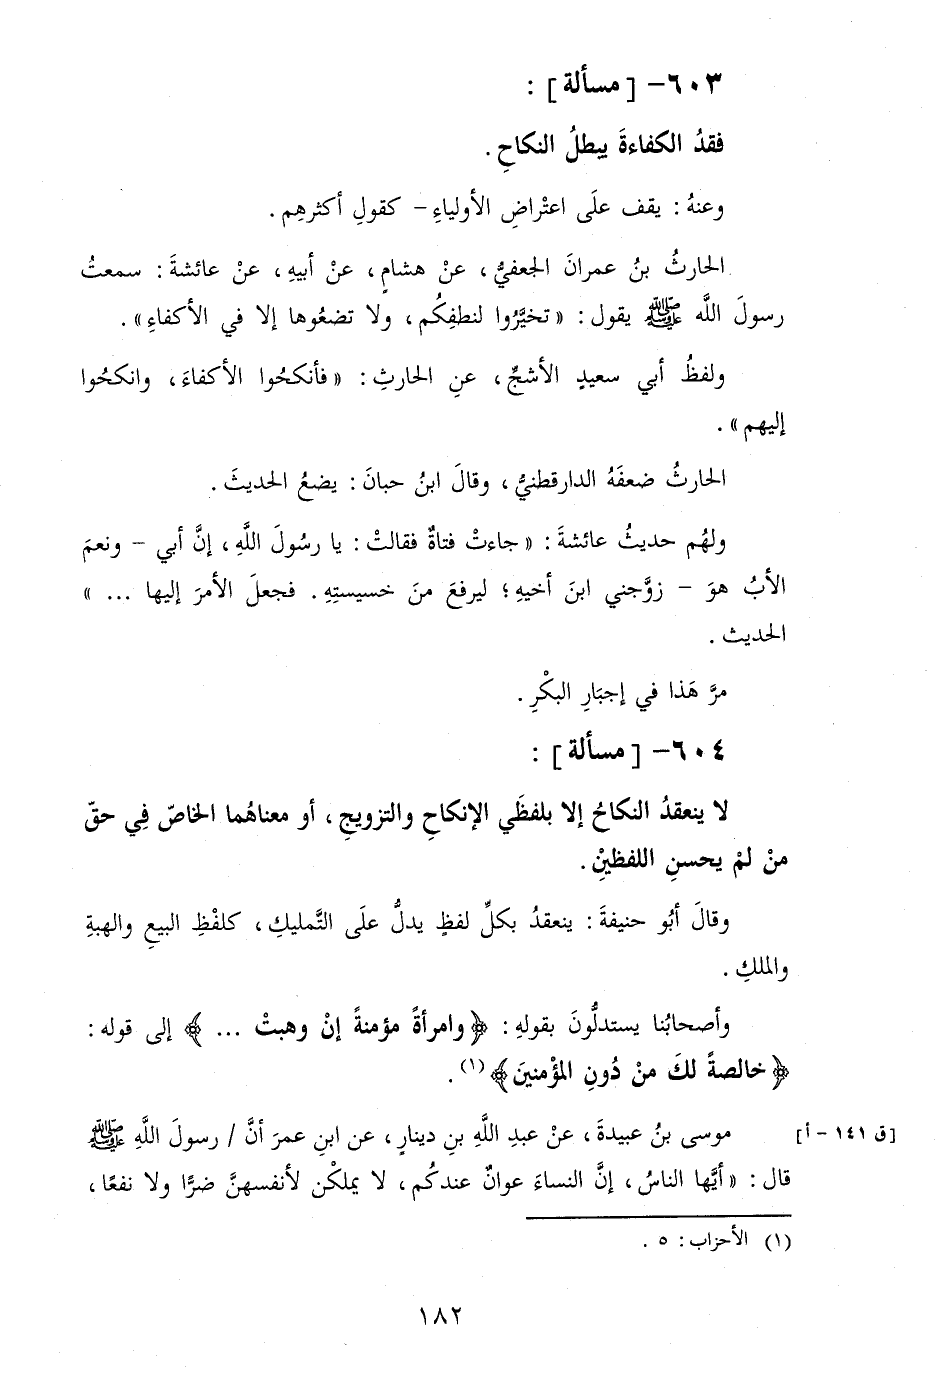 ٦٠٣- [ مسألة ] :
فقدُ الكفاءةَ يبطلُ النكاحِ .
وعنهُ : يقف علَى اعتْراضِ الأولياءِ - كقولِ أكثرهِم .
الحارثُ بنُ عمرانَ الجعفيُّ ، عنْ هشامٍ ، عنْ أبيهِ ، عنْ عائشةَ : سمعتُ
رسولَ اللَّه ﷺ يقول : « تخيَّرُوا لنطفِكُم ، ولا تضعُوها إلا في الأكفاءِ » .
ولفظُ أبي سعيدٍ الأشجِّ ، عنِ الحارثِ : « فأنكحُوا الأكفاءَ ، وانكحُوا
إليهم » .
الحارثُ ضعفَهُ الدارقطنيُّ ، وقالَ ابنُ حبانَ : يضعُ الحديثَ .
ولهُم حديثُ عائشةَ : « جاءتْ فتاةٌ فقالتْ : يا رسُولَ اللَّهِ ، إنَّ أبي - ونعمَ
الأبُ هوَ - زوَّجني ابنَ أخيهِ ؛ ليرفعَ منَ خسيستِهِ . فجعلَ الأمرَ إليها ... »
الحديث .
مرَّ هَذا في إجبَارِ البكْرِ .
٦٠٤- [ مسألة ] :
لا ينعقدُ النكاحُ إلا بلفظَي الإنكاحِ والتزويجِ ، أو معناهُما الخاصّ فِي حقّ
منْ لمْ يحسنِ اللفظيْنِ .
وقالَ أبُو حنيفةَ : ينعقدُ بكلِّ لفظٍ يدلُّ علَى التَّمليكِ ، كلفْظِ البيعِ والهبةِ
والملكِ .
وأصحابُنا يستدلُّونَ بقولهِ : ﴿ وامرأةً مؤمنةً إنْ وهبتْ ... ﴾ إلى قوله :
﴿ خالصةً لكَ منْ دُونِ المؤْمنينَ ﴾ (١) .
[ق ١٤١ - أ] موسى بنُ عبيدةَ ، عنْ عبدِ اللَّهِ بنِ دينارٍ ، عن ابنِ عمرَ أنَّ / رسولَ اللَّهِ ﷺ
قال : « أيَّها الناسُ ، إنَّ النساءَ عوانٌ عندكُم ، لا يملكْن لأنفسهنَّ ضرًّا ولا نفعًا ،
(١) الأحزاب : ٥ .
١٨٢